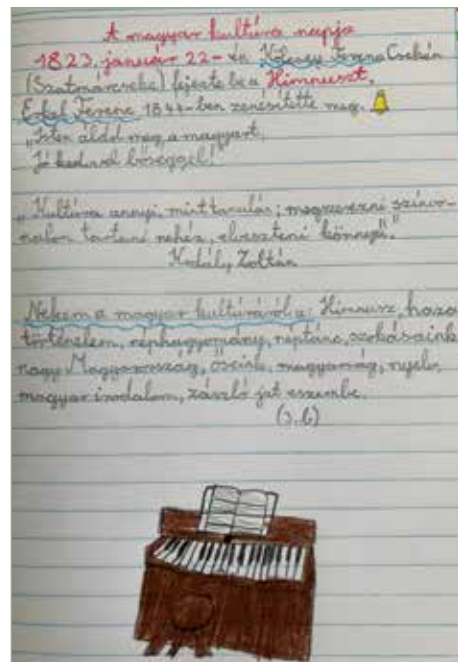 A magyar kultúra napja
1823. január 22-én Kölcsey Ferenc Csekén
(Szatmárcseke) fejezte be a Himnuszt,
Erkel Ferenc 1844-ben zenésítette meg.
„Isten áldd meg a magyart,
Jó kedvvel bőséggel!"
„Kultúra annyi, mint tanulás; megszerezni színvo-
nalon tartani nehéz, elveszteni könnyű."
Kodály Zoltán
Nekem a magyar kultúráról a: Himnusz, haza
történelem, néphagyomány, néptánc, szokásaink
nagy Magyarország, őseink, magyarság, nyelv,
magyar irodalom, zászló jut eszembe.
(3.b)